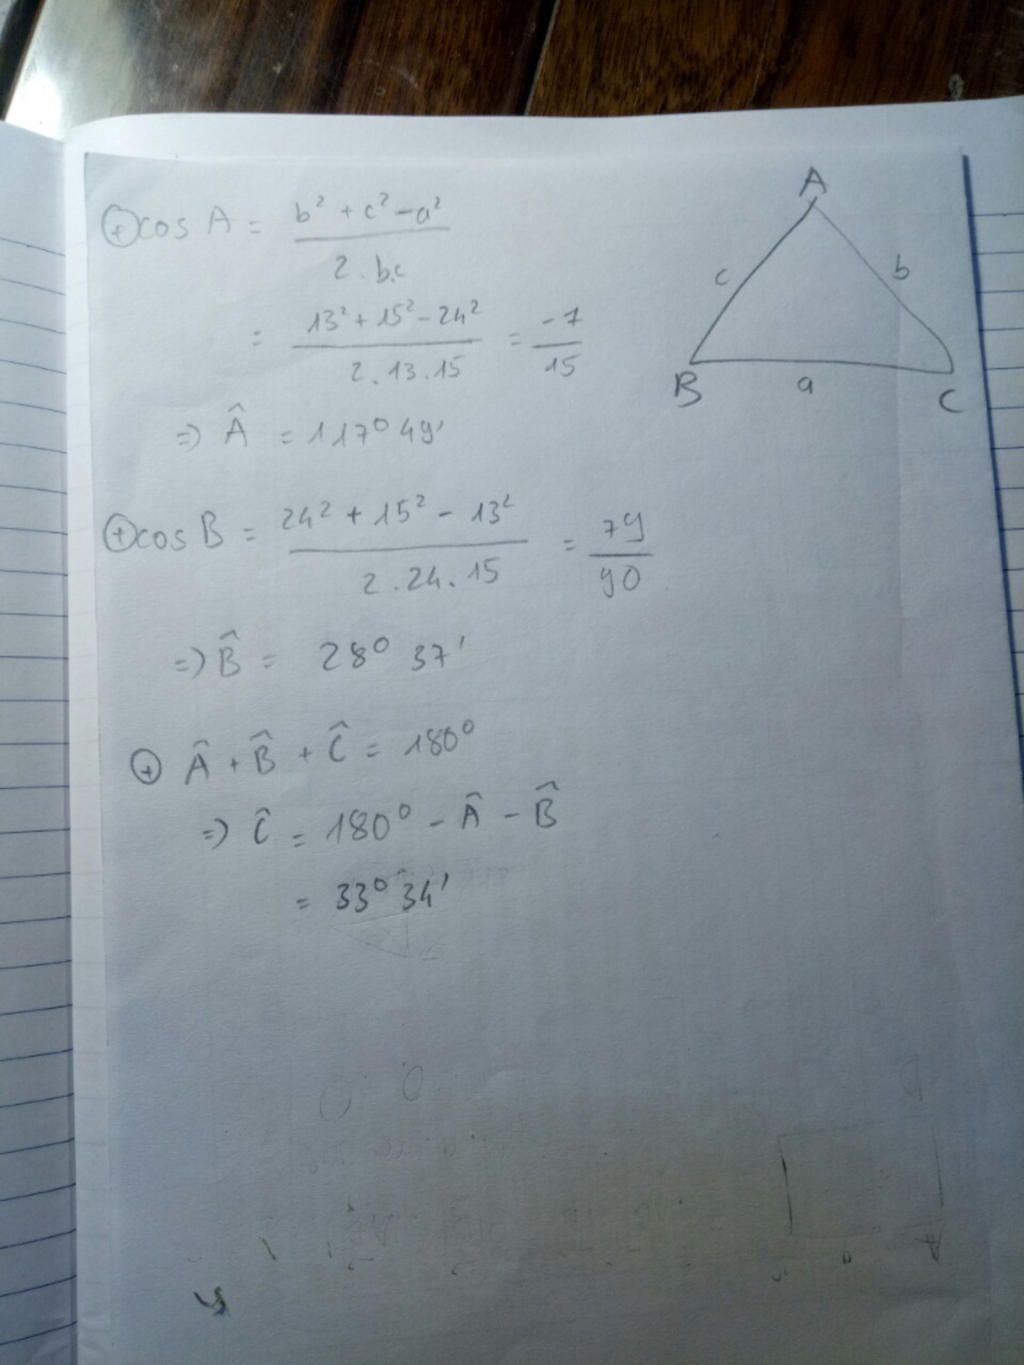 ⊕ cos A = b² + c² - a² / 2 . b.c
= 13² + 15² - 24² / 2 . 13 . 15 = -7 / 15
=> Â = 117° 49'
⊕ cos B = 24² + 15² - 13² / 2 . 24 . 15 = 79 / 90
=> B̂ = 28° 37'
⊕ Â + B̂ + Ĉ = 180°
=> Ĉ = 180° - Â - B̂
= 33° 34'
A
c b
B a C